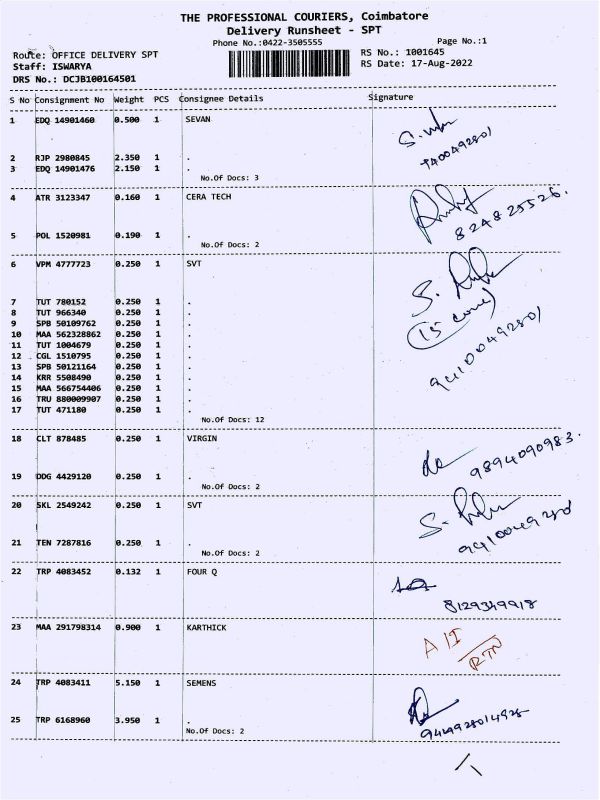 THE PROFESSIONAL COURIERS, Coimbatore
Delivery Runsheet - SPT
Phone No.:0422-3505555 Page No.:1
Route: OFFICE DELIVERY SPT RS No.: 1001645
Staff: ISWARYA RS Date: 17-Aug-2022
DRS No.: DCJB100164501
S No Consignment No Weight PCS Consignee Details Signature
1 EDQ 14901460 0.500 1 SEVAN
2 RJP 2980845 2.350 1 .
3 EDQ 14901476 2.150 1 .
No.Of Docs: 3
4 ATR 3123347 0.160 1 CERA TECH
5 POL 1520981 0.190 1 .
No.Of Docs: 2
6 VPM 4777723 0.250 1 SVT
7 TUT 780152 0.250 1 .
8 TUT 966340 0.250 1 .
9 SPB 50109762 0.250 1 .
10 MAA 562328862 0.250 1 .
11 TUT 1004679 0.250 1 .
12 CGL 1510795 0.250 1 .
13 SPB 50121164 0.250 1 .
14 KRR 5508490 0.250 1 .
15 MAA 566754406 0.250 1 .
16 TRU 880009907 0.250 1 .
17 TUT 471180 0.250 1 .
No.Of Docs: 12
18 CLT 878485 0.250 1 VIRGIN
9894090983.
19 DDG 4429120 0.250 1 .
No.Of Docs: 2
20 SKL 2549242 0.250 1 SVT
21 TEN 7287816 0.250 1 .
No.Of Docs: 2
22 TRP 4083452 0.132 1 FOUR Q
8129349918
23 MAA 291798314 0.900 1 KARTHICK
A/I
RTN
24 TRP 4083411 5.150 1 SEMENS
25 TRP 6168960 3.950 1 .
No.Of Docs: 2